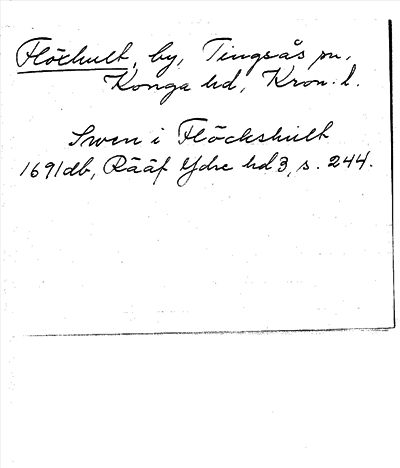 Flöxhult, by, Tingsås sn,
Konga hd, Kron. l.
Swen i Flöckshult
1691 db, Rääf Ydre hd 3, s. 244.